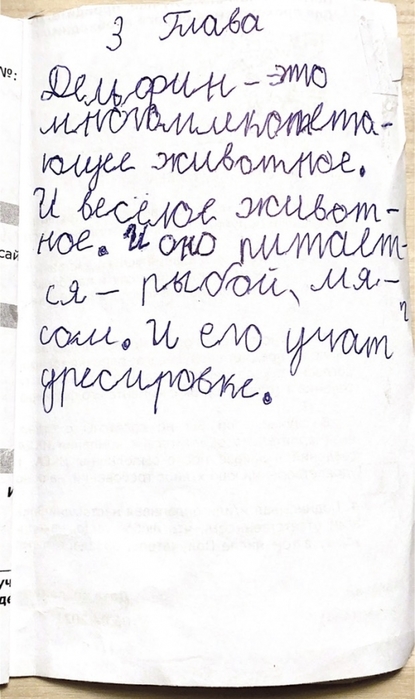 3 Глава
Дельфин – это
многомлекопета-
ющее животное.
И весёлое живот-
ное. И оно питает-
ся – рыбой, мя-
сом. И его учат
дресировке.
№:
сай
И
уч
де